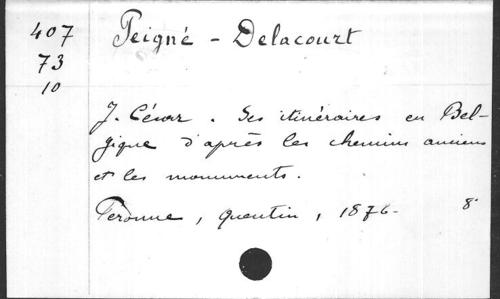 407
73
10
Peigné - Delacourt
J. César. Ses itinéraires en Bel-
gique d'après les chemins anciens
et les monuments.
Péronne, Quentin, 1876- 8°